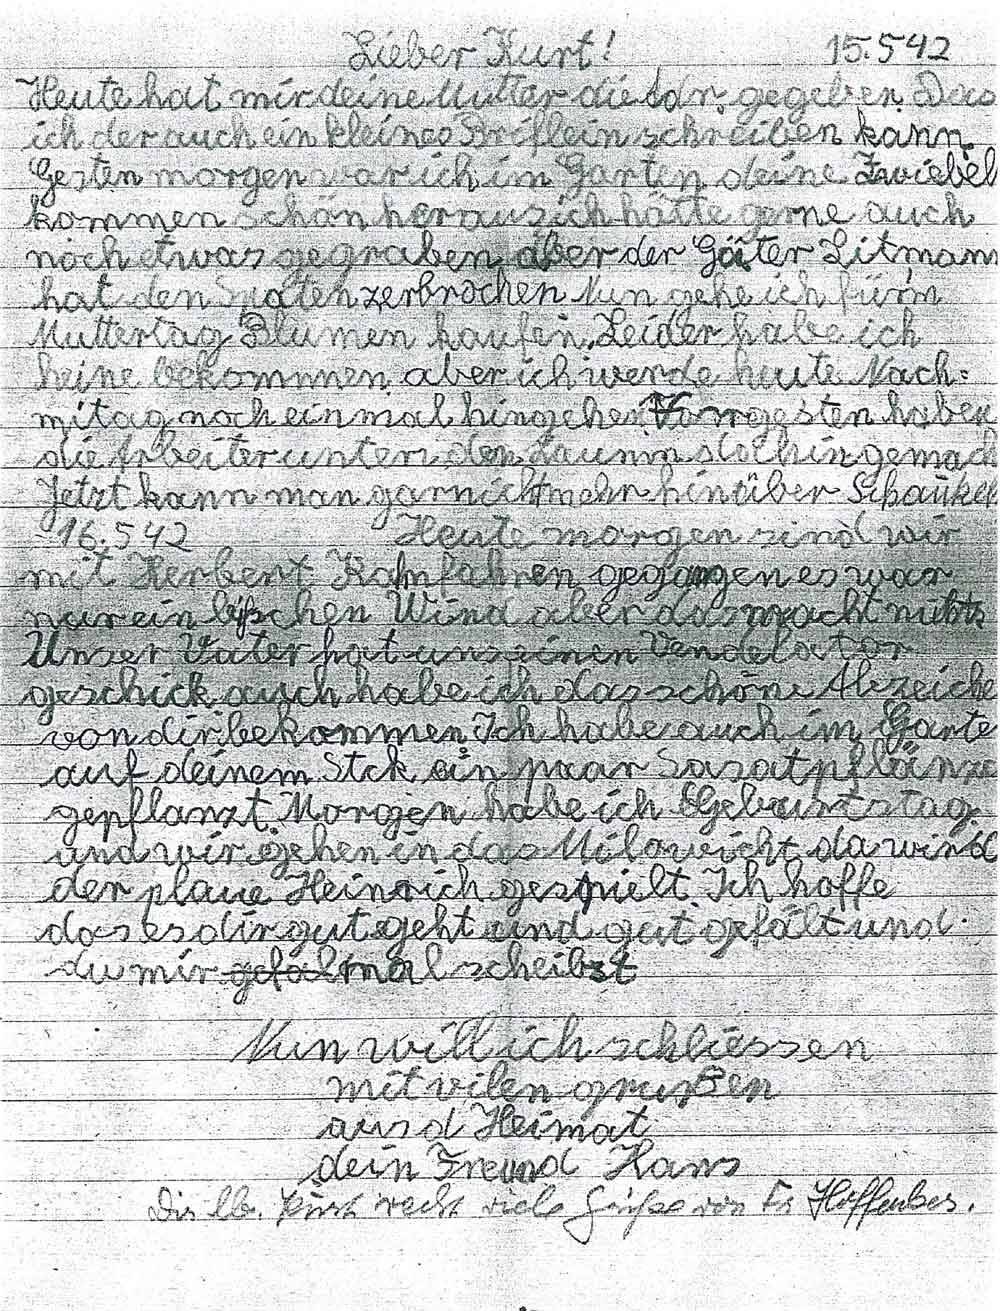 Lieber Kurt! 15.5 42
Heute hat mir deine Mutter die Adr. gegeben. Das
ich der auch ein kleines Briflein schreiben kann.
Gesten morgen war ich im Garten deine Zwiebel
kommen schön heraus ich hätte gerne auch
noch etwas gegraben aber der Litmann
hat den Spaten zerbrochen Nun gehe ich fürn
Muttertag Blumen kaufen. Leider habe ich
keine bekommen aber ich werde heute Nach=
mitag noch einmal hingehen. Vorrgesten haben
die Arbeiter unter den Zaun
Jetzt kann man garnicht mehr hinüber Schaukel
16.5 42 Heute morgen sind wir
mit Herbert Kahnfahren gegangen es war
nur ein bischen Wind aber das macht nichts
Unser Vater hat uns einen Vendelator
geschick auch habe ich das schöne Abzeiche
von dir bekommen. Ich habe auch im Garte
auf deinem Stck ein paar Sasatpflänze
gepflanzt. Morgen habe ich Geburtstag.
und wir gehen in das da wird
der plaue Heinrich gespielt. Ich hoffe
das es dir gut geht und gut gefält und
du mir gefäl mal scheibst
Nun will ich schliessen
mit vilen grußen
aus d Heimat
dein Freund Hans
Dir lb. Kurt recht viele Grüße von